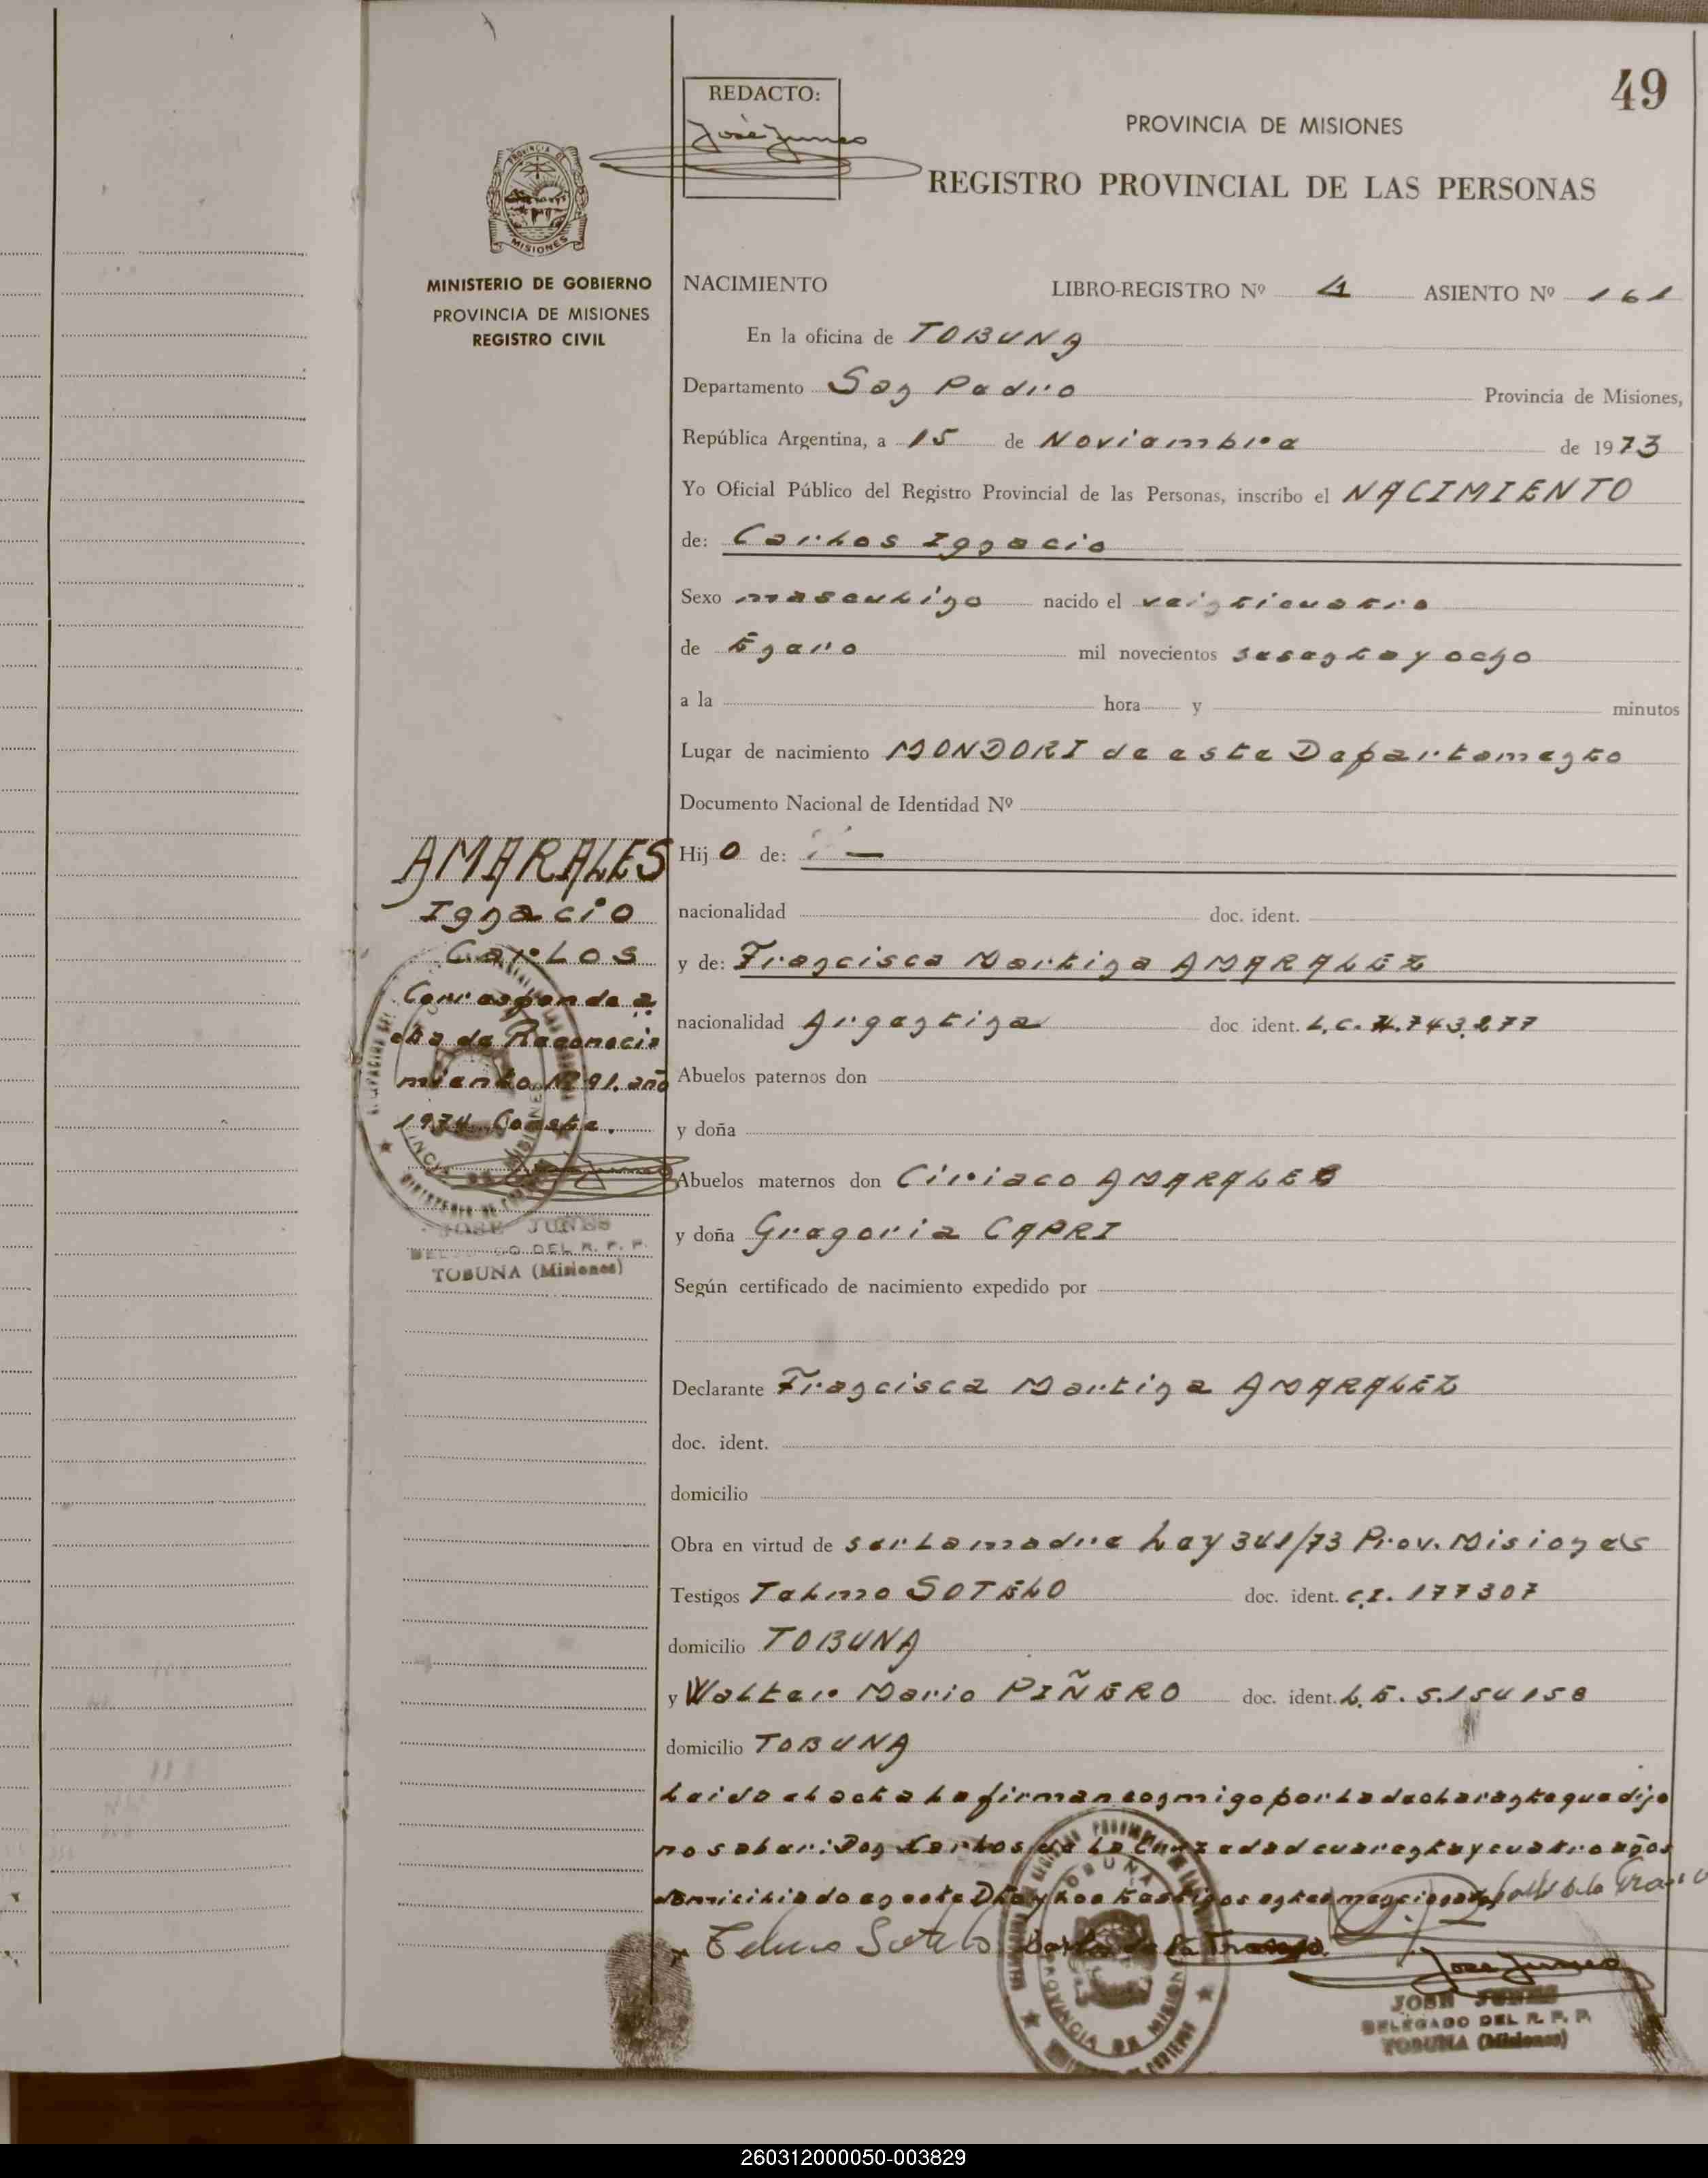 49
REDACTO:
José Junes
PROVINCIA DE MISIONES
REGISTRO PROVINCIAL DE LAS PERSONAS
PROVINCIA DE
MISIONES
MINISTERIO DE GOBIERNO
PROVINCIA DE MISIONES
REGISTRO CIVIL
NACIMIENTO LIBRO-REGISTRO Nº 4 ASIENTO Nº 161
En la oficina de TOBUNA
Departamento San Pedro Provincia de Misiones,
República Argentina, a 15 de Noviembre de 1973
Yo Oficial Público del Registro Provincial de las Personas, inscribo el NACIMIENTO
de: Carlos Ignacio
Sexo masculino nacido el veinticuatro
de Enero mil novecientos sesenta y ocho
a la hora y minutos
Lugar de nacimiento MONDORI de este Departamento
Documento Nacional de Identidad Nº
Hijo de: —
nacionalidad doc. ident.
y de: Francisca Martina AMARALEZ
nacionalidad Argentina doc ident. L.C. 4.743.277
Abuelos paternos don
y doña
Abuelos maternos don Ciriaco AMARALES
y doña Gregoria CAPRI
Según certificado de nacimiento expedido por
Declarante Francisca Martina AMARALEZ
doc. ident.
domicilio
Obra en virtud de ser la madre Ley 341/73 Prov. Misiones
Testigos Telmo SOTELO doc. ident. C.I. 177307
domicilio TOBUNA
y Walter Mario PIÑERO doc. ident. L.E. 5.154158
domicilio TOBUNA
Leida el acta la firman conmigo por la declarante que dijo
no saber: Don Carlos de la Cruz edad cuarenta y cuatro años
domiciliado en este Dto y los testigos antes mencionados
Telmo Sotelo
José Junes
JOSE JUNES
DELEGADO DEL R. P. P.
TOBUNA (Misiones)
AMARALES
Ignacio
Carlos
Corresponde a
cta de Reconoci
miento Nº 91. año
1974 Conste.
JOSE JUNES
DELEGADO DEL R. P. P.
TOBUNA (Misiones)
260312000050-003829